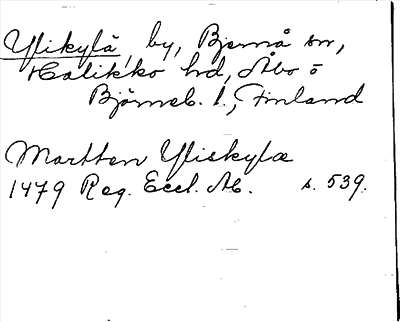 Ylikylä, by, Bjernå sn,
Halikko hd, Åbo o
Björneb. l., Finland
Martten Yliskylæ
1479 Reg. Eccl. Ab. s. 539.